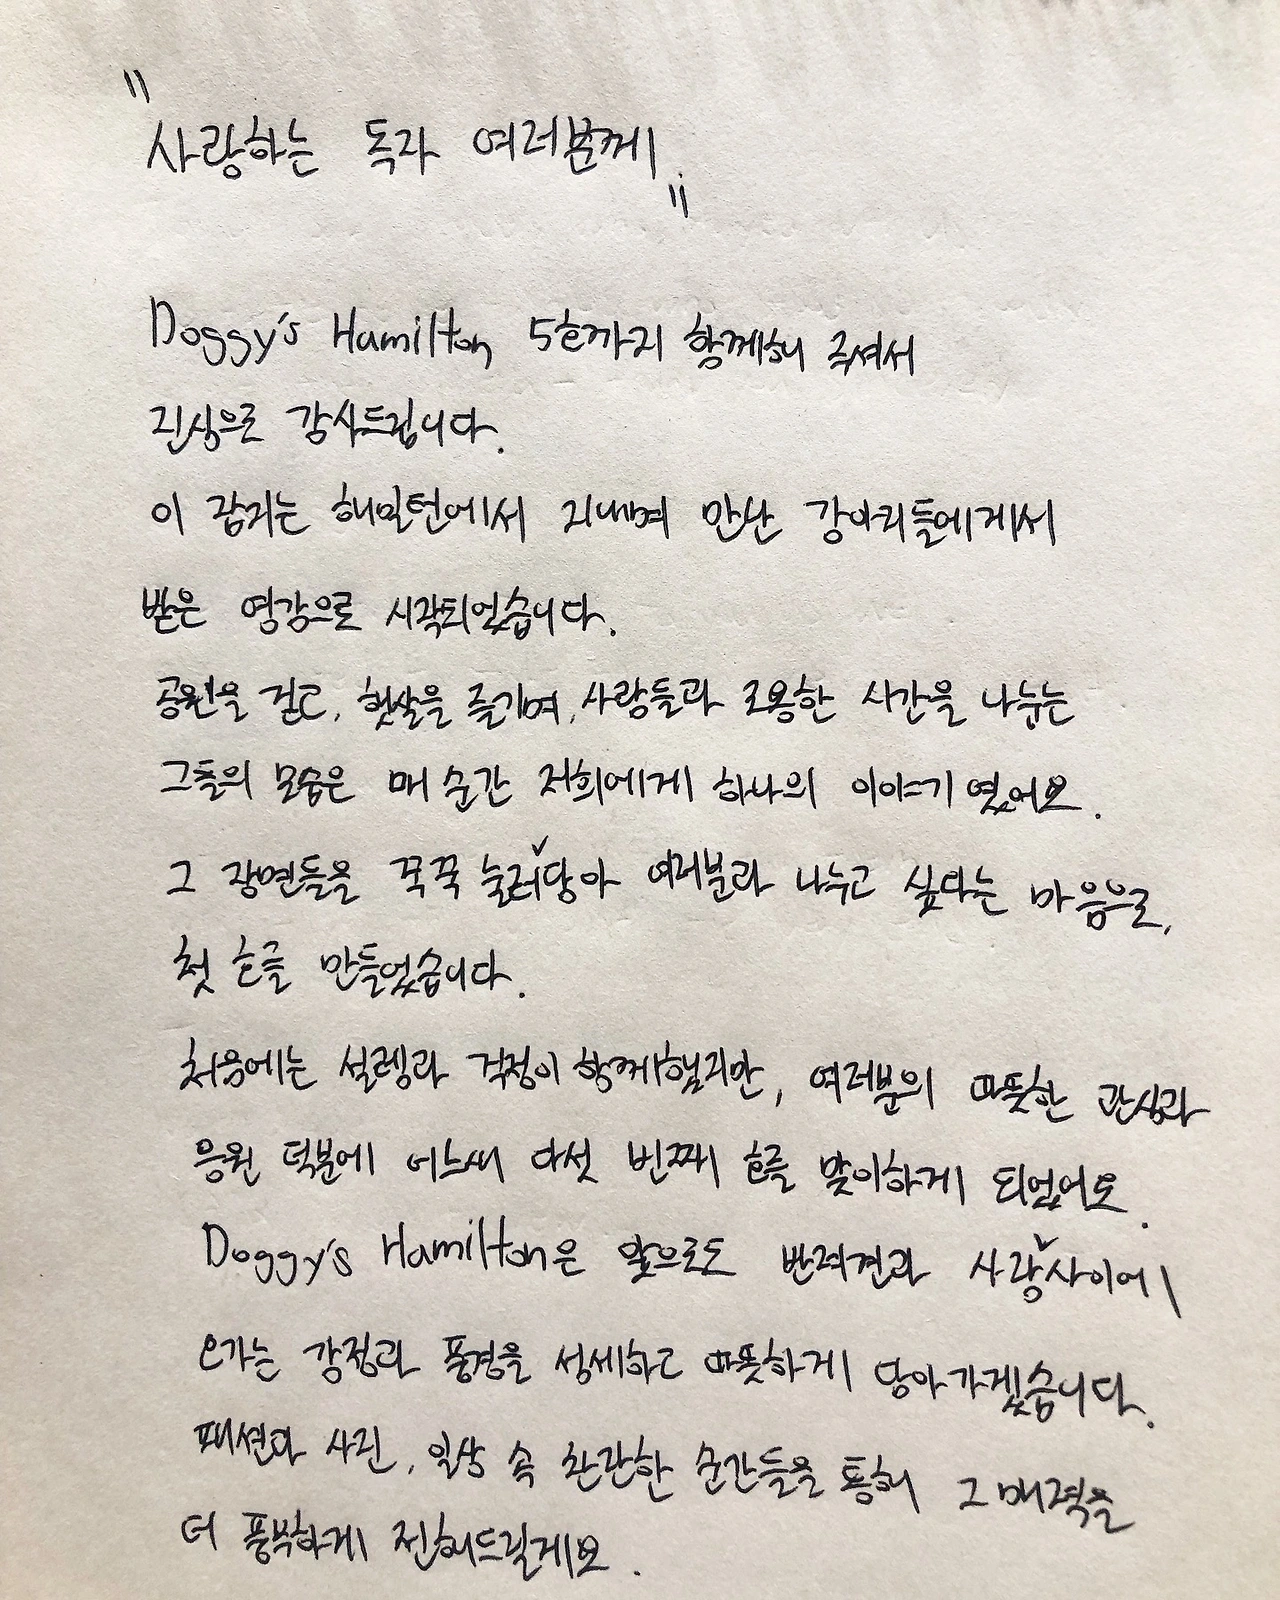 "사랑하는 독자 여러분께"
Doggy's Hamilton 5호까지 함께해 주셔서
진심으로 감사드립니다.
이 잡지는 해밀턴에서 지내며 만난 강아지들에게서
받은 영감으로 시작되었습니다.
공원을 걷고, 햇살을 즐기며, 사람들과 조용한 시간을 나누는
그들의 모습은 매 순간 저희에게 하나의 이야기였어요.
그 장면들을 꾹꾹 눌러 담아 여러분과 나누고 싶다는 마음으로,
첫 호를 만들었습니다.
처음에는 설렘과 걱정이 함께했지만, 여러분의 따뜻한 관심과
응원 덕분에 어느새 다섯 번째 호를 맞이하게 되었어요.
Doggy's Hamilton은 앞으로도 반려견과 사람 사이에
오가는 감정과 풍경을 섬세하고 따뜻하게 담아가겠습니다.
패션과 사진, 일상 속 찬란한 순간들을 통해 그 매력을
더 풍부하게 전해드릴게요.